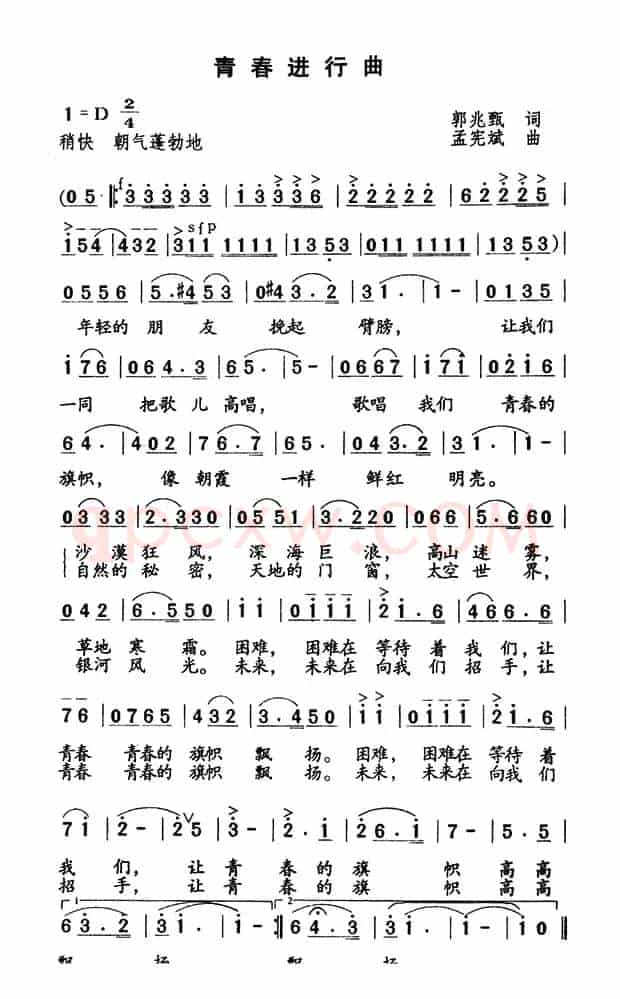 青春进行曲
1=D 2/4
郭兆甄 词
稍快 朝气蓬勃地
孟宪斌 曲
(05 𝄆 f 33333 | 13336 | 22222 | 62225 |
154 | 432 | 311 sfp 1111 | 1353 | 011 1111 | 1353) |
0556 | 5.#453 | 0#43.2 | 31. | 1- | 0135 |
年轻的 朋 友 挽起 臂膀, 让我们
176 | 064.3 | 65. | 5- | 0667 | 171 | 0216 |
一同 把歌儿高唱, 歌唱 我们 青春的
64. | 402 | 76.7 | 65. | 043.2 | 31. | 1- |
旗帜, 像 朝霞 一样 鲜红 明亮。
0333 | 2.330 | 0551 | 3.220 | 066 | 5.660 |
沙漠狂 风, 深海巨 浪, 高山迷 雾,
自然的秘 密, 天地的门 窗, 太空世 界,
042 | 6.550 | 11 | 0111 | 21.6 | 466.6 |
草地 寒 霜。困难, 困难在 等待 着我们,让
银河 风 光。未来, 未来在 向我们 招手,让
76 | 0765 | 432 | 3.450 | 11 | 0111 | 21.6 |
青春 青春的 旗帜 飘 扬。困难, 困难在 等待 着
青春 青春的 旗帜 飘 扬。未来, 未来在 向我们
71 | 2- | 2∨5 | 3- | 2.1 | 26.1 | 7- | 5.5 |
我 们, 让青 春的旗 帜 高高
招 手, 让青 春的旗 帜 高高
1 2
63.2 | 31. | 1- 𝄇 64.3 | 32. | 1- | 10 ‖
qpcxw.COM